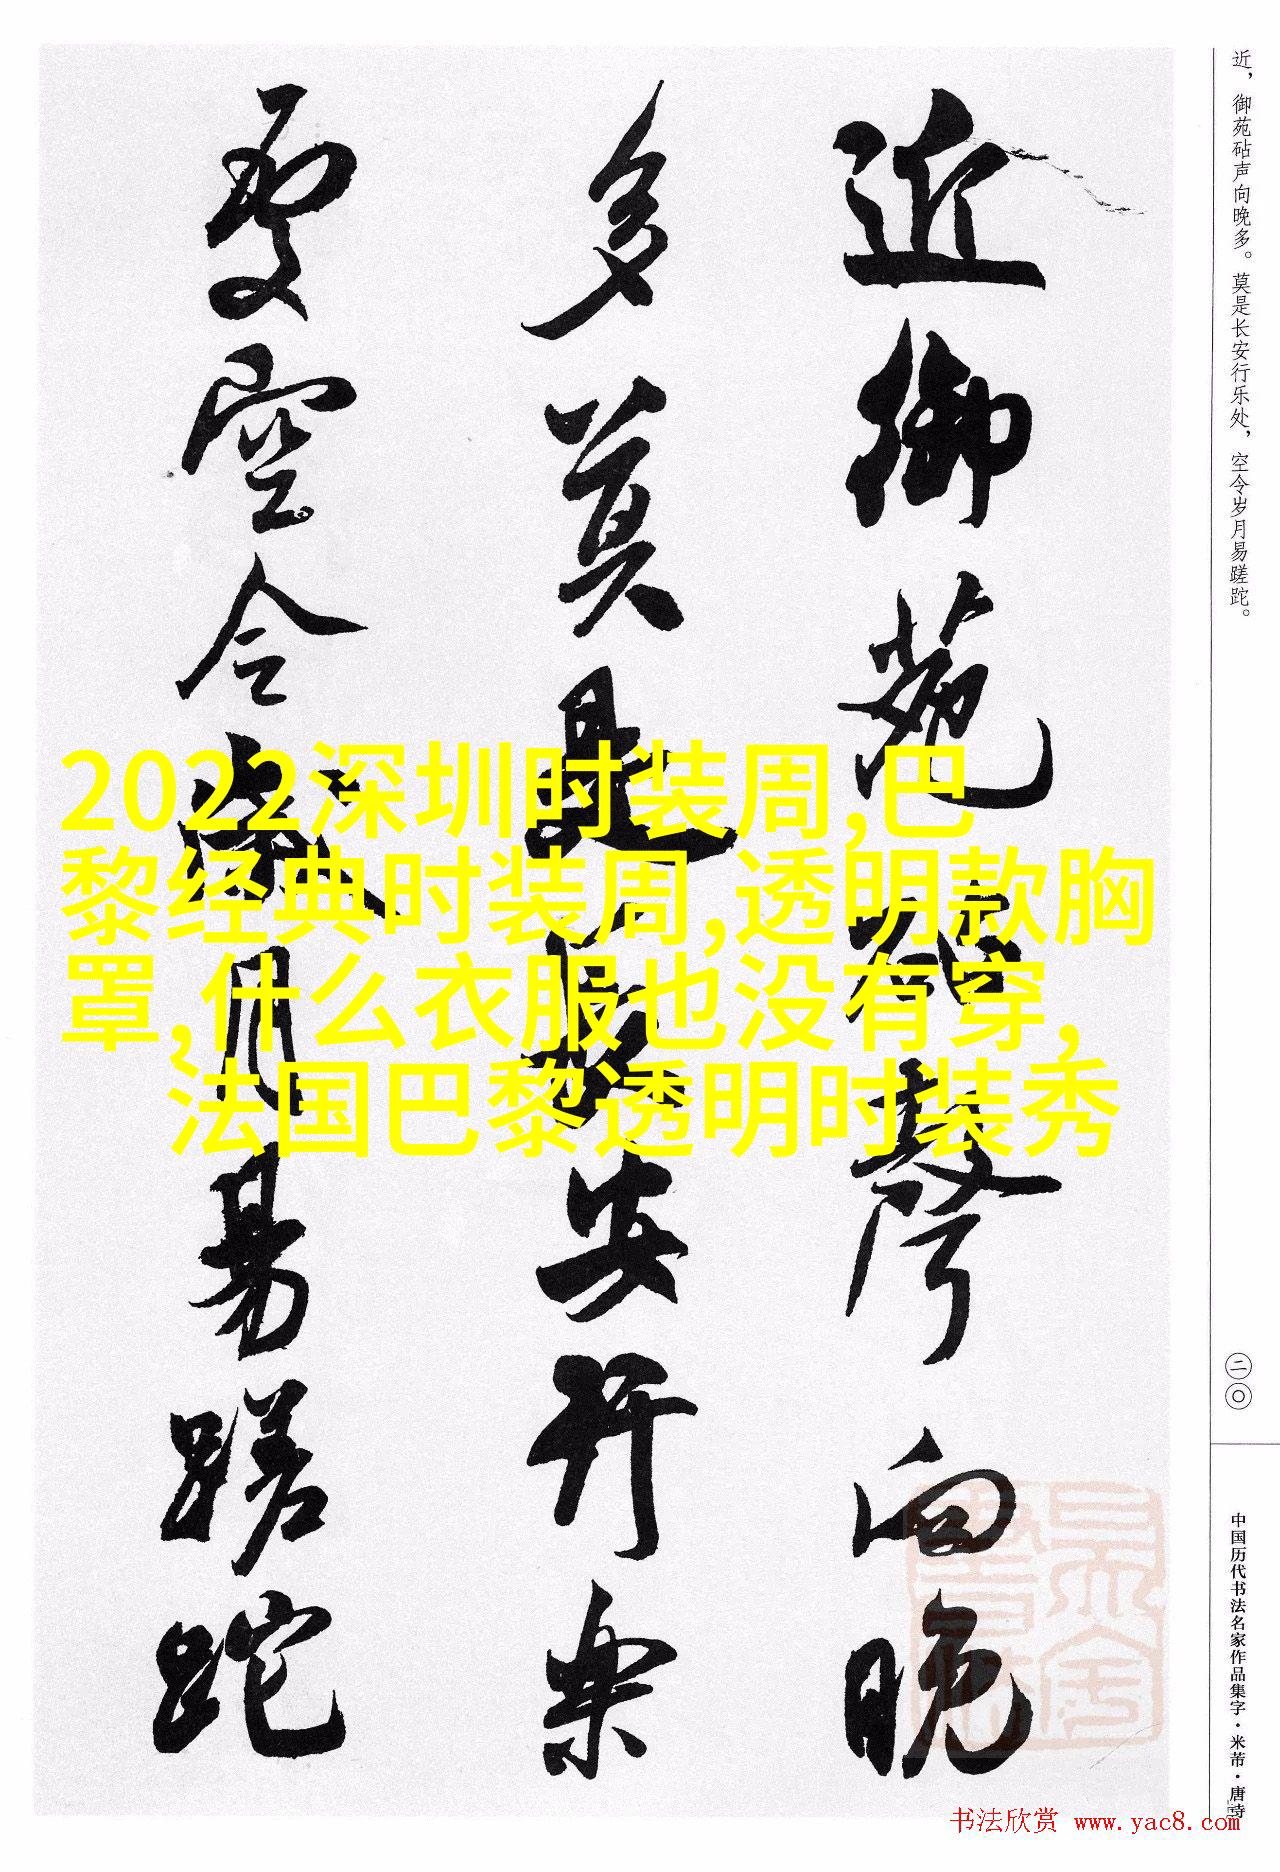 近，御苑砧声向晚多。莫是长安行乐处，空令岁月易蹉跎。
近御苑砧聲向晚
多莫是長安行樂
處空令歲月易蹉跎
2022深圳时装周,巴
黎经典时装周,透明款胸
罩,什么衣服也没有穿,
法国巴黎透明时装秀
二〇
中国历代书法名家作品集字·米芾·唐诗
书法欣赏 www.yac8.com